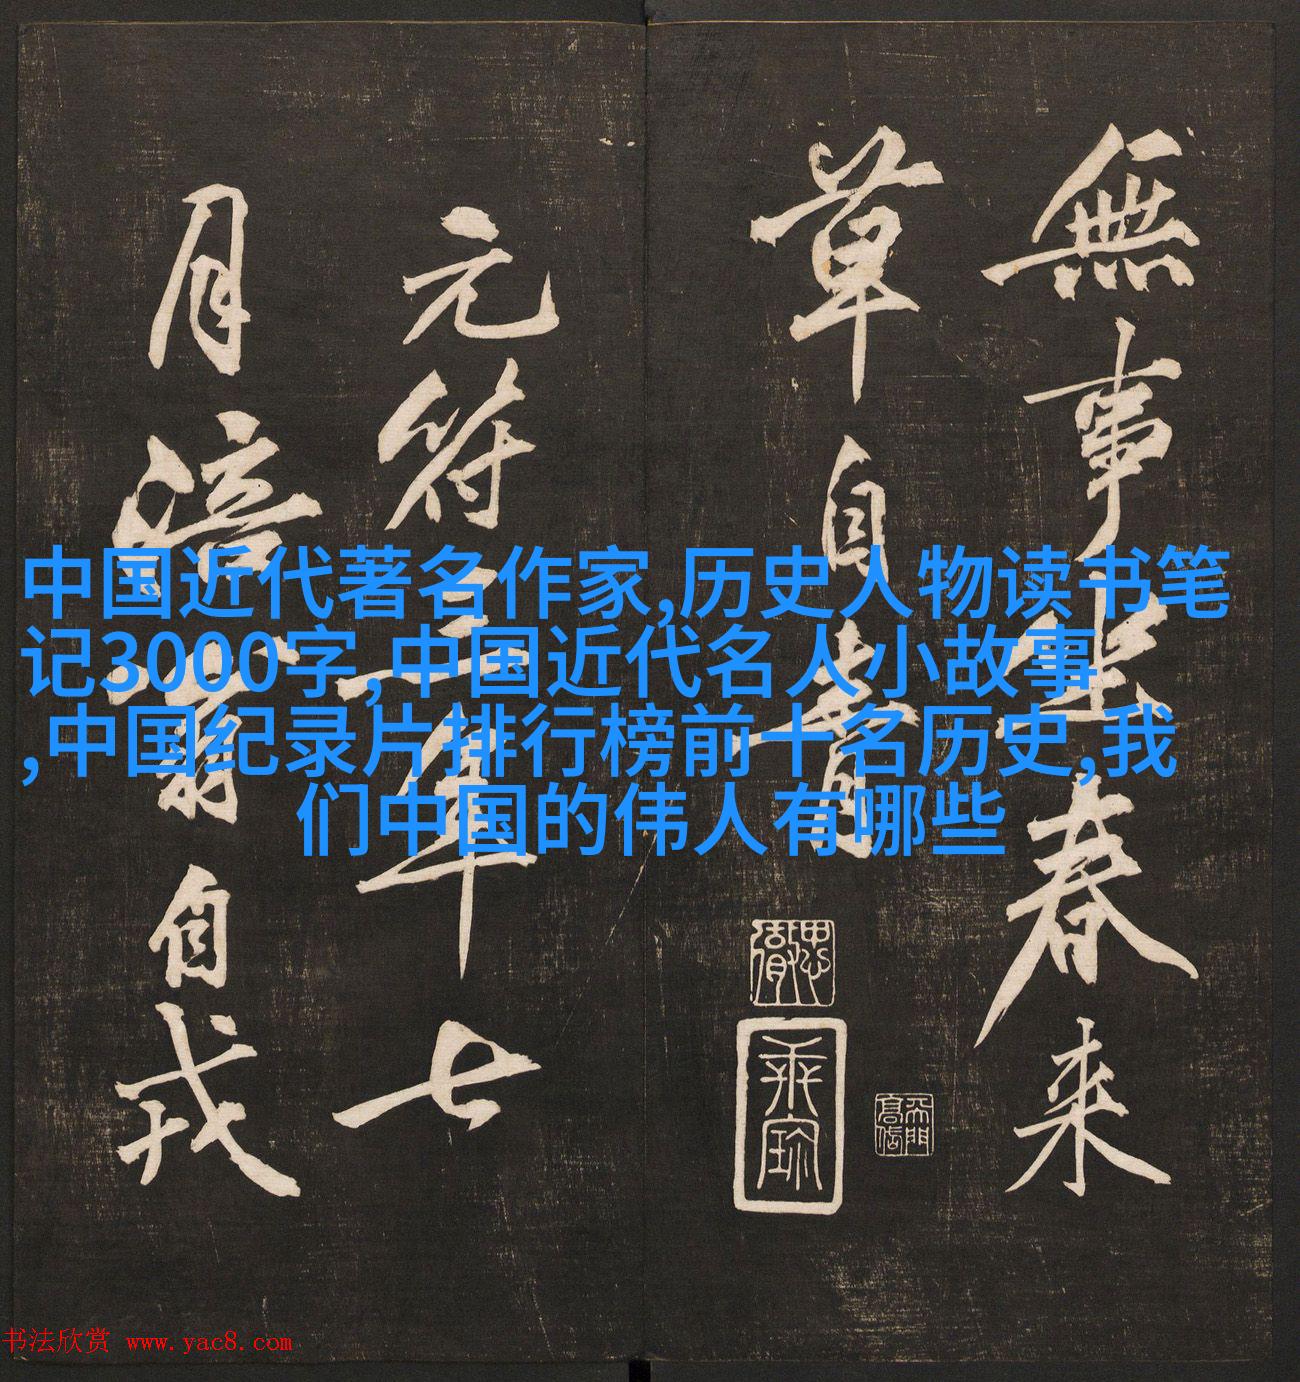 無事坐春来
草自青
元符三年七
月涪翁自戎
中国近代著名作家,历史人物读书笔
记3000字,中国近代名人小故事
,中国纪录片排行榜前十名历史,我
们中国的伟人有哪些
书法欣赏 www.yac8.com